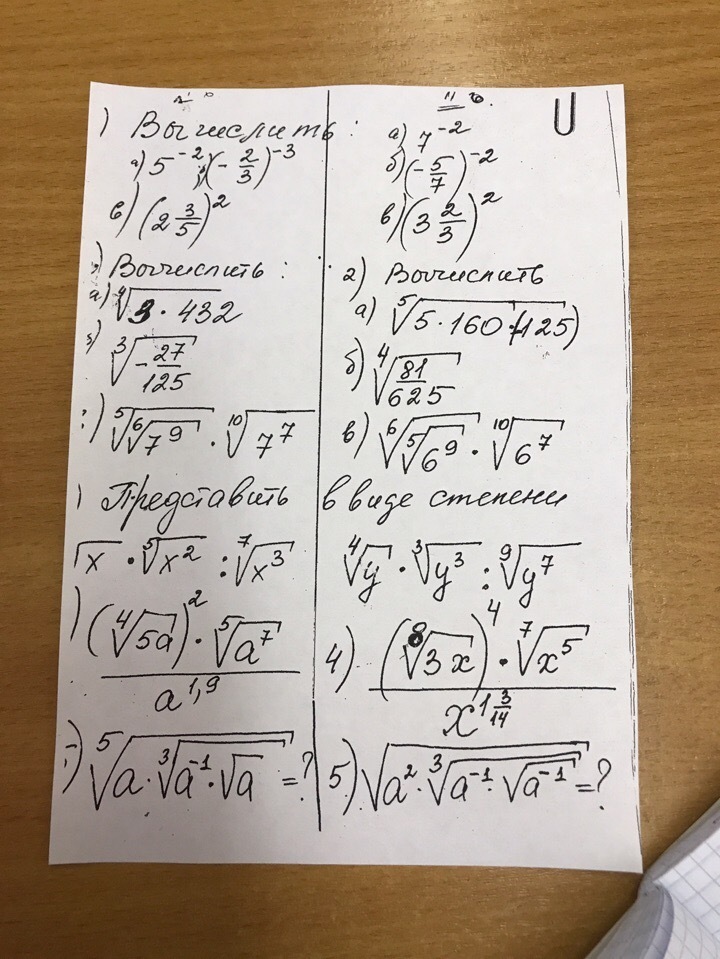 II в.
) Вычислить:
а) 5^{-2}; (-\frac{2}{3})^{-3}
в) (2\frac{3}{5})^2
) Вычислить:
а) \sqrt[4]{3 \cdot 432}
б) \sqrt[3]{-\frac{27}{125}}
) \sqrt[5]{\sqrt[6]{7^9}} \cdot \sqrt[10]{7^7}
) Представить в виде степени
\sqrt{x} \cdot \sqrt[5]{x^2} : \sqrt[7]{x^3}
) \frac{(\sqrt[4]{5a})^2 \cdot \sqrt[5]{a^7}}{a^{1,9}}
) \sqrt[5]{a \cdot \sqrt[3]{a^{-1} \cdot \sqrt{a}}} = ?
а) 7^{-2}
б) (-\frac{5}{7})^{-2}
в) (3\frac{2}{3})^2
2) Вычислить
а) \sqrt[5]{5 \cdot 160 \cdot (-125)}
б) \sqrt[4]{\frac{81}{625}}
в) \sqrt[6]{\sqrt[5]{6^9}} \cdot \sqrt[10]{6^7}
\sqrt[4]{y} \cdot \sqrt[3]{y^3} : \sqrt[9]{y^7}
4) \frac{(\sqrt[8]{3x})^4 \cdot \sqrt[7]{x^5}}{x^{1\frac{3}{14}}}
5) \sqrt{a^2 \cdot \sqrt[3]{a^{-1} \cdot \sqrt{a^{-1}}}} = ?